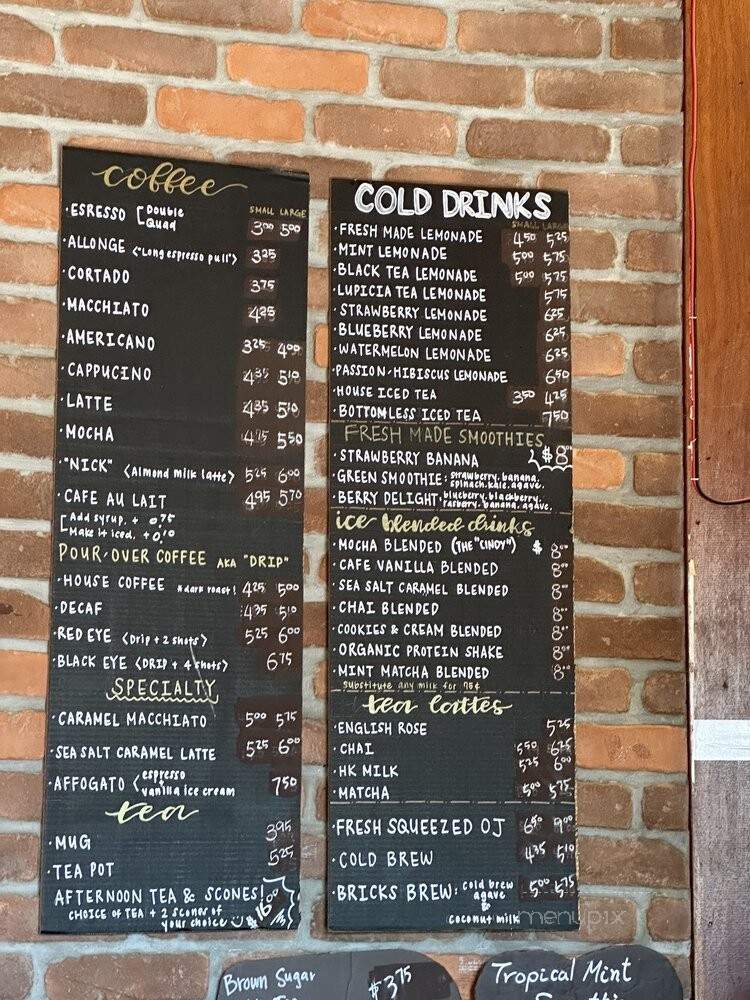 coffee
SMALL LARGE
• ESPRESSO [Double Quad 3⁰⁰ 5⁰⁰
• ALLONGE <"Long espresso pull"> 3²⁵
• CORTADO 3⁷⁵
• MACCHIATO 4²⁵
• AMERICANO 3²⁵ 4⁰⁰
• CAPPUCINO 4³⁵ 5¹⁰
• LATTE 4³⁵ 5¹⁰
• MOCHA 4⁷⁵ 5⁵⁰
• "NICK" <Almond milk latte> 5²⁵ 6⁰⁰
• CAFE AU LAIT 4⁹⁵ 5⁷⁰
[Add syrup. + 0.75
Make it iced. + 0.10
POUR-OVER COFFEE AKA "DRIP"
• HOUSE COFFEE *dark roast! 4²⁵ 5⁰⁰
• DECAF 4³⁵ 5¹⁰
• RED EYE <Drip + 2 shots> 5²⁵ 6⁰⁰
• BLACK EYE <DRIP + 4 shots> 6⁷⁵
SPECIALTY
• CARAMEL MACCHIATO 5⁰⁰ 5⁷⁵
• SEA SALT CARAMEL LATTE 5²⁵ 6⁰⁰
• AFFOGATO <espresso + vanilla ice cream 7⁵⁰
tea
• MUG 3⁹⁵
• TEA POT 5²⁵
AFTERNOON TEA & SCONES!
CHOICE OF TEA + 2 scones of
your choice $16⁰⁰
COLD DRINKS
SMALL LARGE
• FRESH MADE LEMONADE 4⁵⁰ 5²⁵
• MINT LEMONADE 5⁰⁰ 5⁷⁵
• BLACK TEA LEMONADE 5⁰⁰ 5⁷⁵
• LUPICIA TEA LEMONADE 5⁷⁵
• STRAWBERRY LEMONADE 6²⁵
• BLUEBERRY LEMONADE 6²⁵
• WATERMELON LEMONADE 6²⁵
• PASSION-HIBISCUS LEMONADE 6⁵⁰
• HOUSE ICED TEA 3⁵⁰ 4²⁵
• BOTTOMLESS ICED TEA 7⁵⁰
FRESH MADE SMOOTHIES
• STRAWBERRY BANANA $8⁰⁰
• GREEN SMOOTHIE: strawberry. banana.
spinach. kale. agave.
• BERRY DELIGHT: blueberry. blackberry.
rasberry. banana. agave.
ice blended drinks
• MOCHA BLENDED (THE "CINDY") $ 8⁰⁰
• CAFE VANILLA BLENDED 8⁰⁰
• SEA SALT CARAMEL BLENDED 8⁰⁰
• CHAI BLENDED 8⁰⁰
• COOKIES & CREAM BLENDED 8⁰⁰
• ORGANIC PROTEIN SHAKE 8⁰⁰
• MINT MATCHA BLENDED 8⁰⁰
substitute any milk for 75¢
tea lattes
• ENGLISH ROSE 5²⁵
• CHAI 5⁵⁰ 6²⁵
• HK MILK 5²⁵ 6⁰⁰
• MATCHA 5⁰⁰ 5⁷⁵
• FRESH SQUEEZED OJ 6⁵⁰ 9⁰⁰
• COLD BREW 4³⁵ 5¹⁰
• BRICKS BREW: cold brew 5⁰⁰ 5⁷⁵
agave
&
coconut milk
menupix
Brown Sugar
$3⁷⁵
Tropical Mint